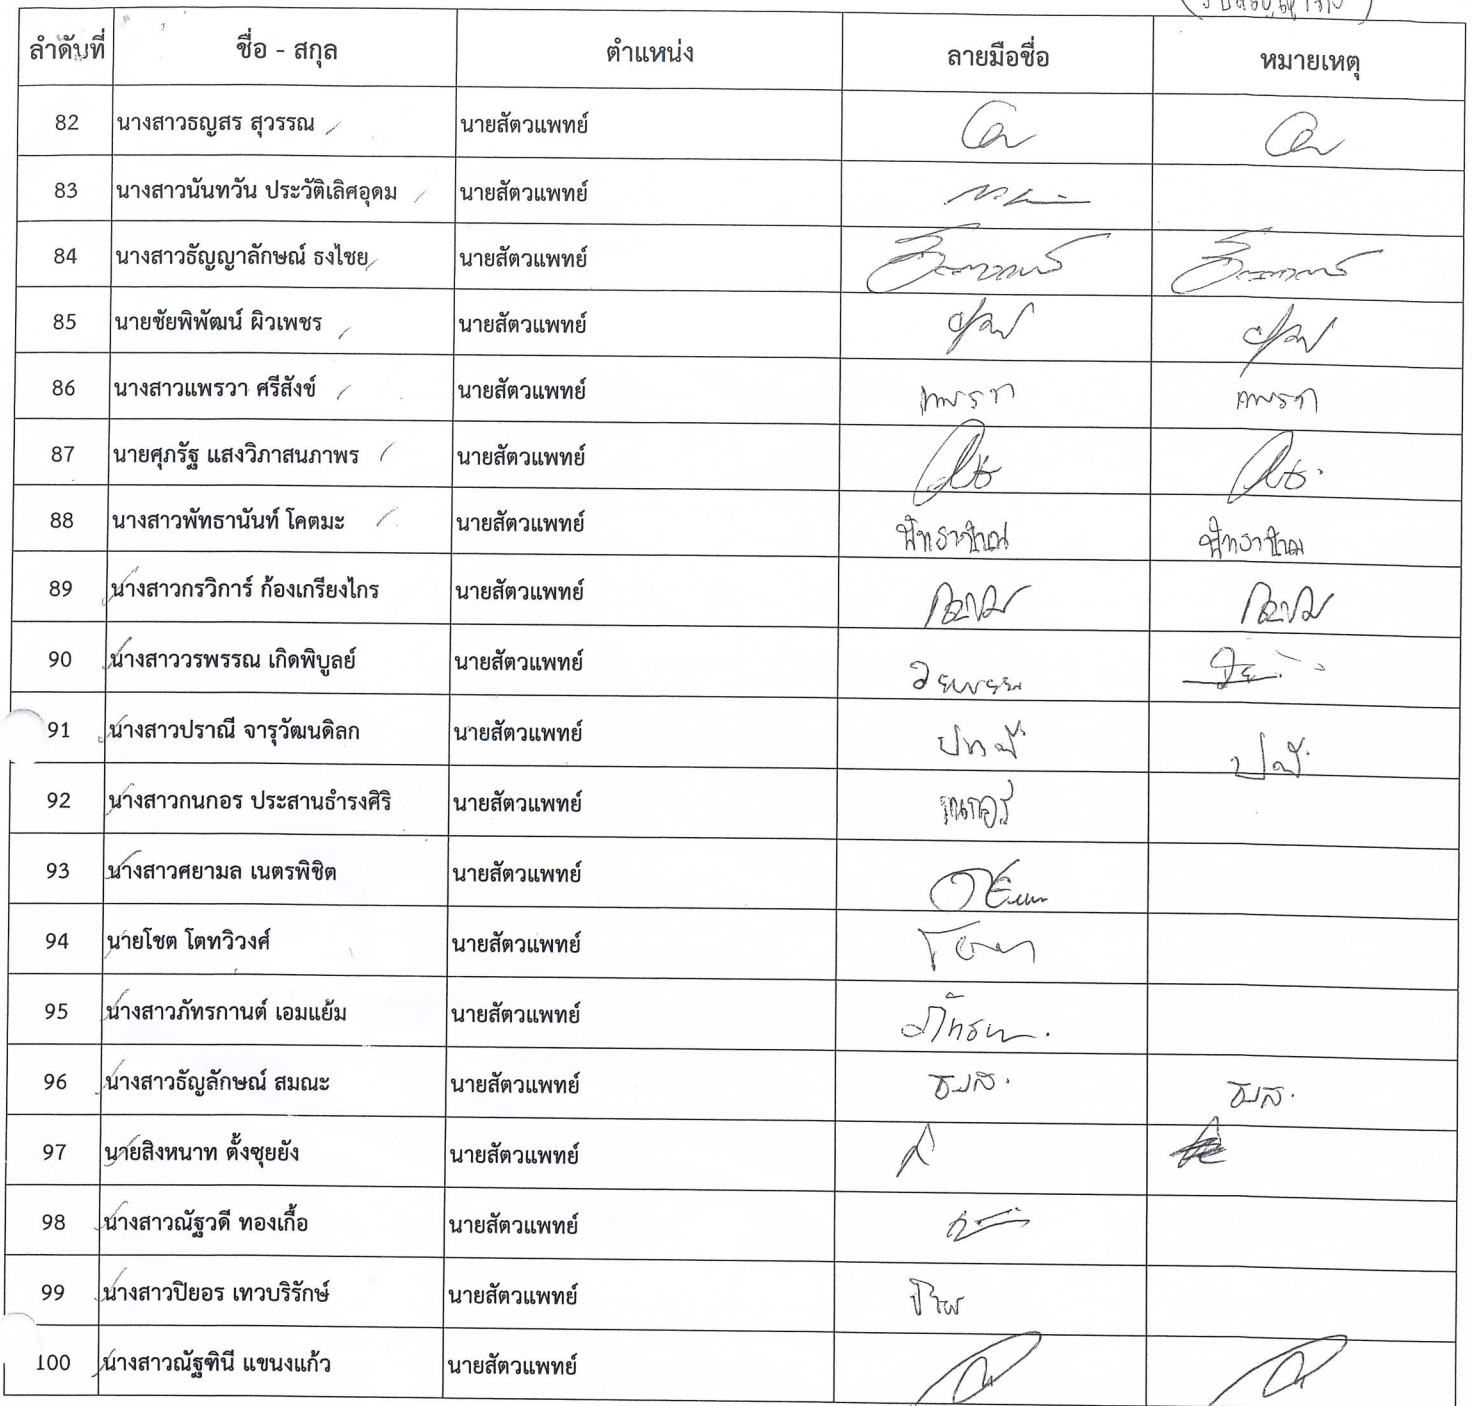 ลำดับที่ ชื่อ - สกุล ตำแหน่ง ลายมือชื่อ หมายเหตุ
82 นางสาวธญสร สุวรรณ นายสัตวแพทย์
83 นางสาวนันทวัน ประวัติเลิศอุดม นายสัตวแพทย์
84 นางสาวธัญญาลักษณ์ ธงไชย นายสัตวแพทย์
85 นายชัยพิพัฒน์ ผิวเพชร นายสัตวแพทย์
86 นางสาวแพรวา ศรีสังข์ นายสัตวแพทย์ แพรวา แพรวา
87 นายศุภรัฐ แสงวิภาสนภาพร นายสัตวแพทย์
88 นางสาวพัทธานันท์ โคตมะ นายสัตวแพทย์
89 นางสาวกรวิการ์ ก้องเกรียงไกร นายสัตวแพทย์
90 นางสาววรพรรณ เกิดพิบูลย์ นายสัตวแพทย์
91 นางสาวปราณี จารุวัฒนดิลก นายสัตวแพทย์
92 นางสาวกนกอร ประสานธำรงศิริ นายสัตวแพทย์
93 นางสาวศยามล เนตรพิชิต นายสัตวแพทย์
94 นายโชต โตทวิวงศ์ นายสัตวแพทย์
95 นางสาวภัทรกานต์ เอมแย้ม นายสัตวแพทย์
96 นางสาวธัญลักษณ์ สมณะ นายสัตวแพทย์
97 นายสิงหนาท ตั้งซุยยัง นายสัตวแพทย์
98 นางสาวณัฐวดี ทองเกื้อ นายสัตวแพทย์
99 นางสาวปิยอร เทวบริรักษ์ นายสัตวแพทย์
100 นางสาวณัฐฑินี แขนงแก้ว นายสัตวแพทย์